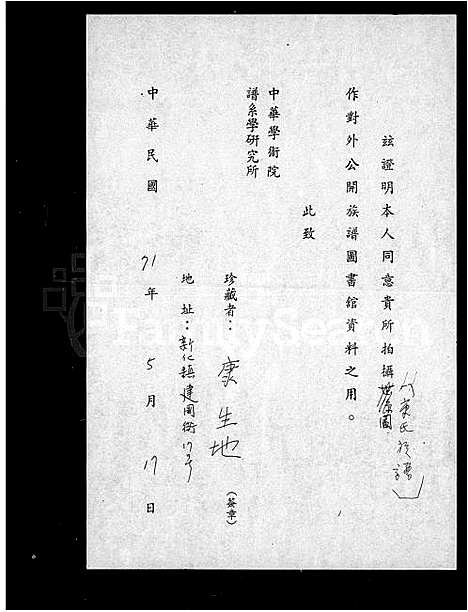 玆證明本人同意貴所拍攝世系圖
(康氏族譜)
作對外公開族譜圖書館資料之用。
此致
中華學術院
譜系學研究所
珍藏者：康生地(簽章)
地址：新化鎮建國街17号
中華民國71年5月17日
FamilySearch